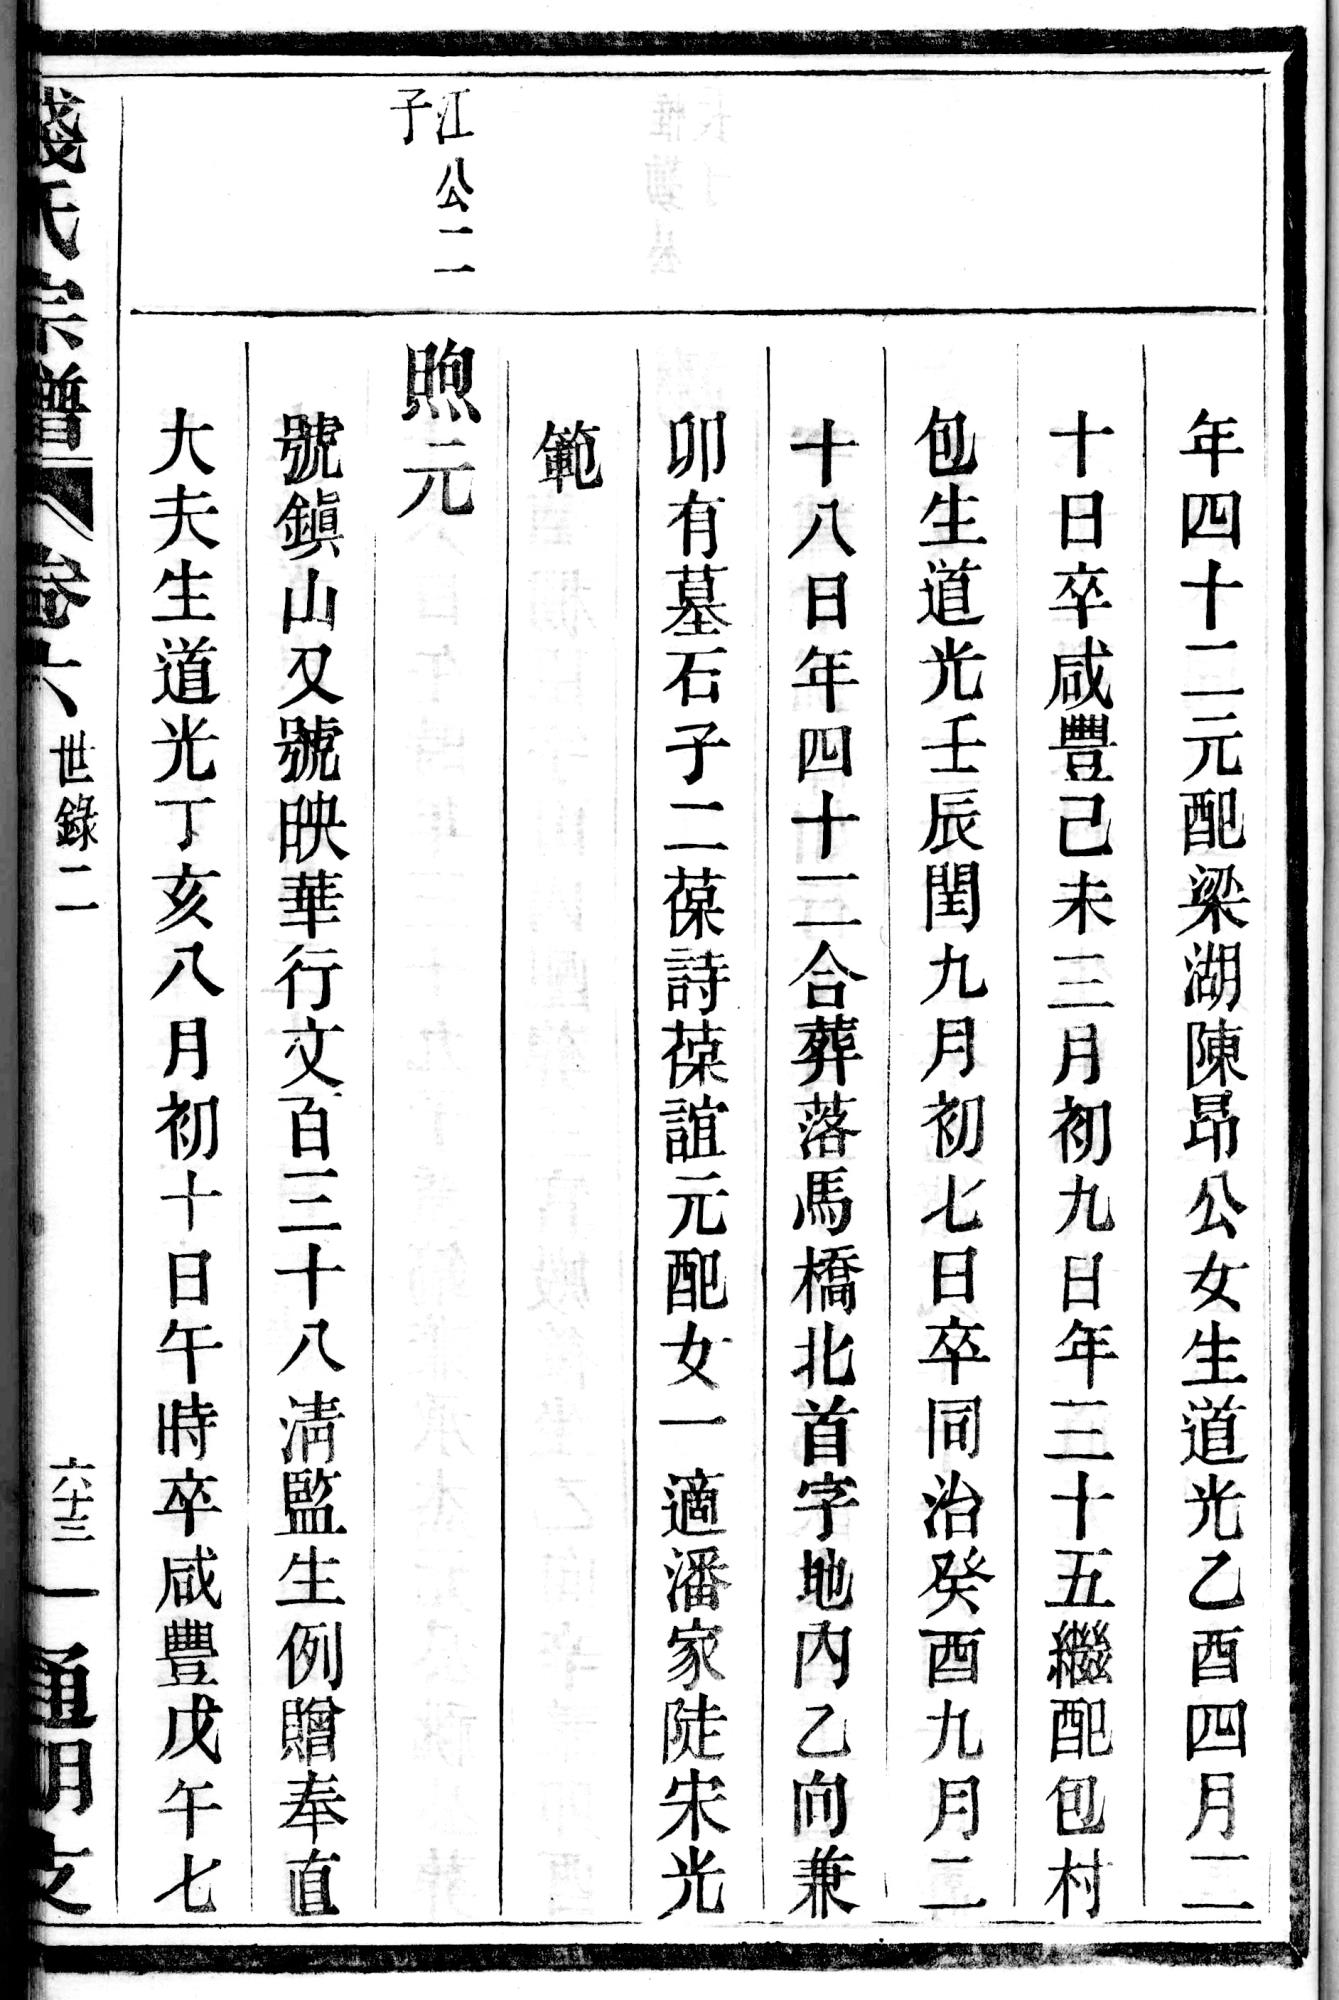 年四十二元配梁湖陳昂公女生道光乙酉四月二
十日卒咸豐己未三月初九日年三十五繼配包村
包生道光壬辰閏九月初七日卒同治癸酉九月二
十八日年四十二合葬落馬橋北首字地內乙向兼
卯有墓石子二葆詩葆誼元配女一適潘家陡宋光
範
江公二
子
煦元
號鎭山又號映華行文百三十八淸監生例贈奉直
大夫生道光丁亥八月初十日午時卒咸豐戊午七
錢氏宗譜 卷六 世錄二 六十三 一 通明支